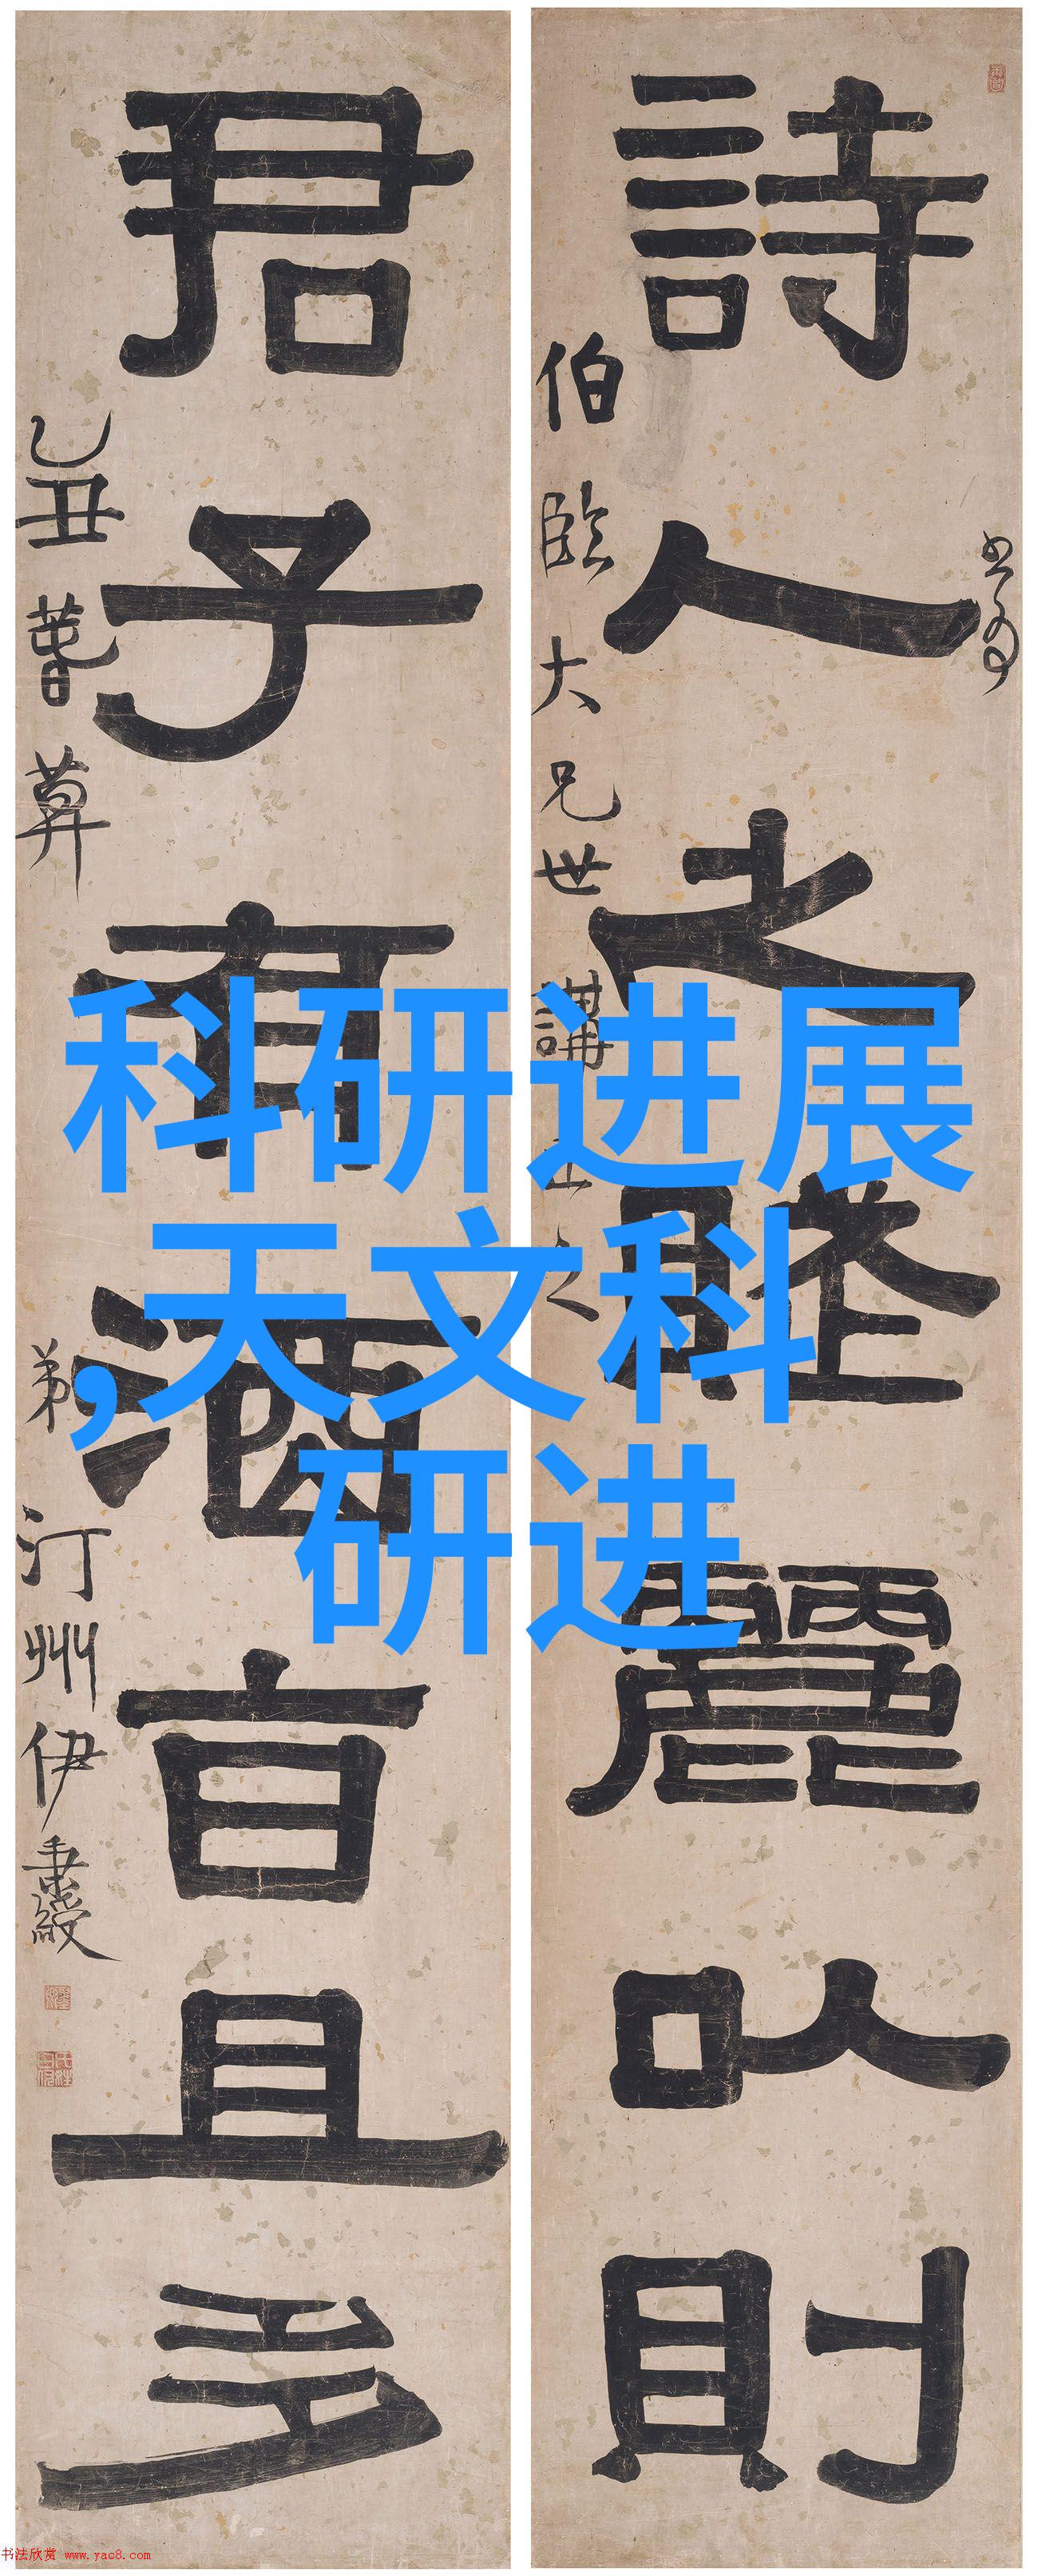 詩人之賦麗以則
伯臨大兄世講正之
君子有酒旨且多
乙丑
弟汀州伊秉綬
科研进展
,天文科
研进
书法欣赏 www.yac8.com